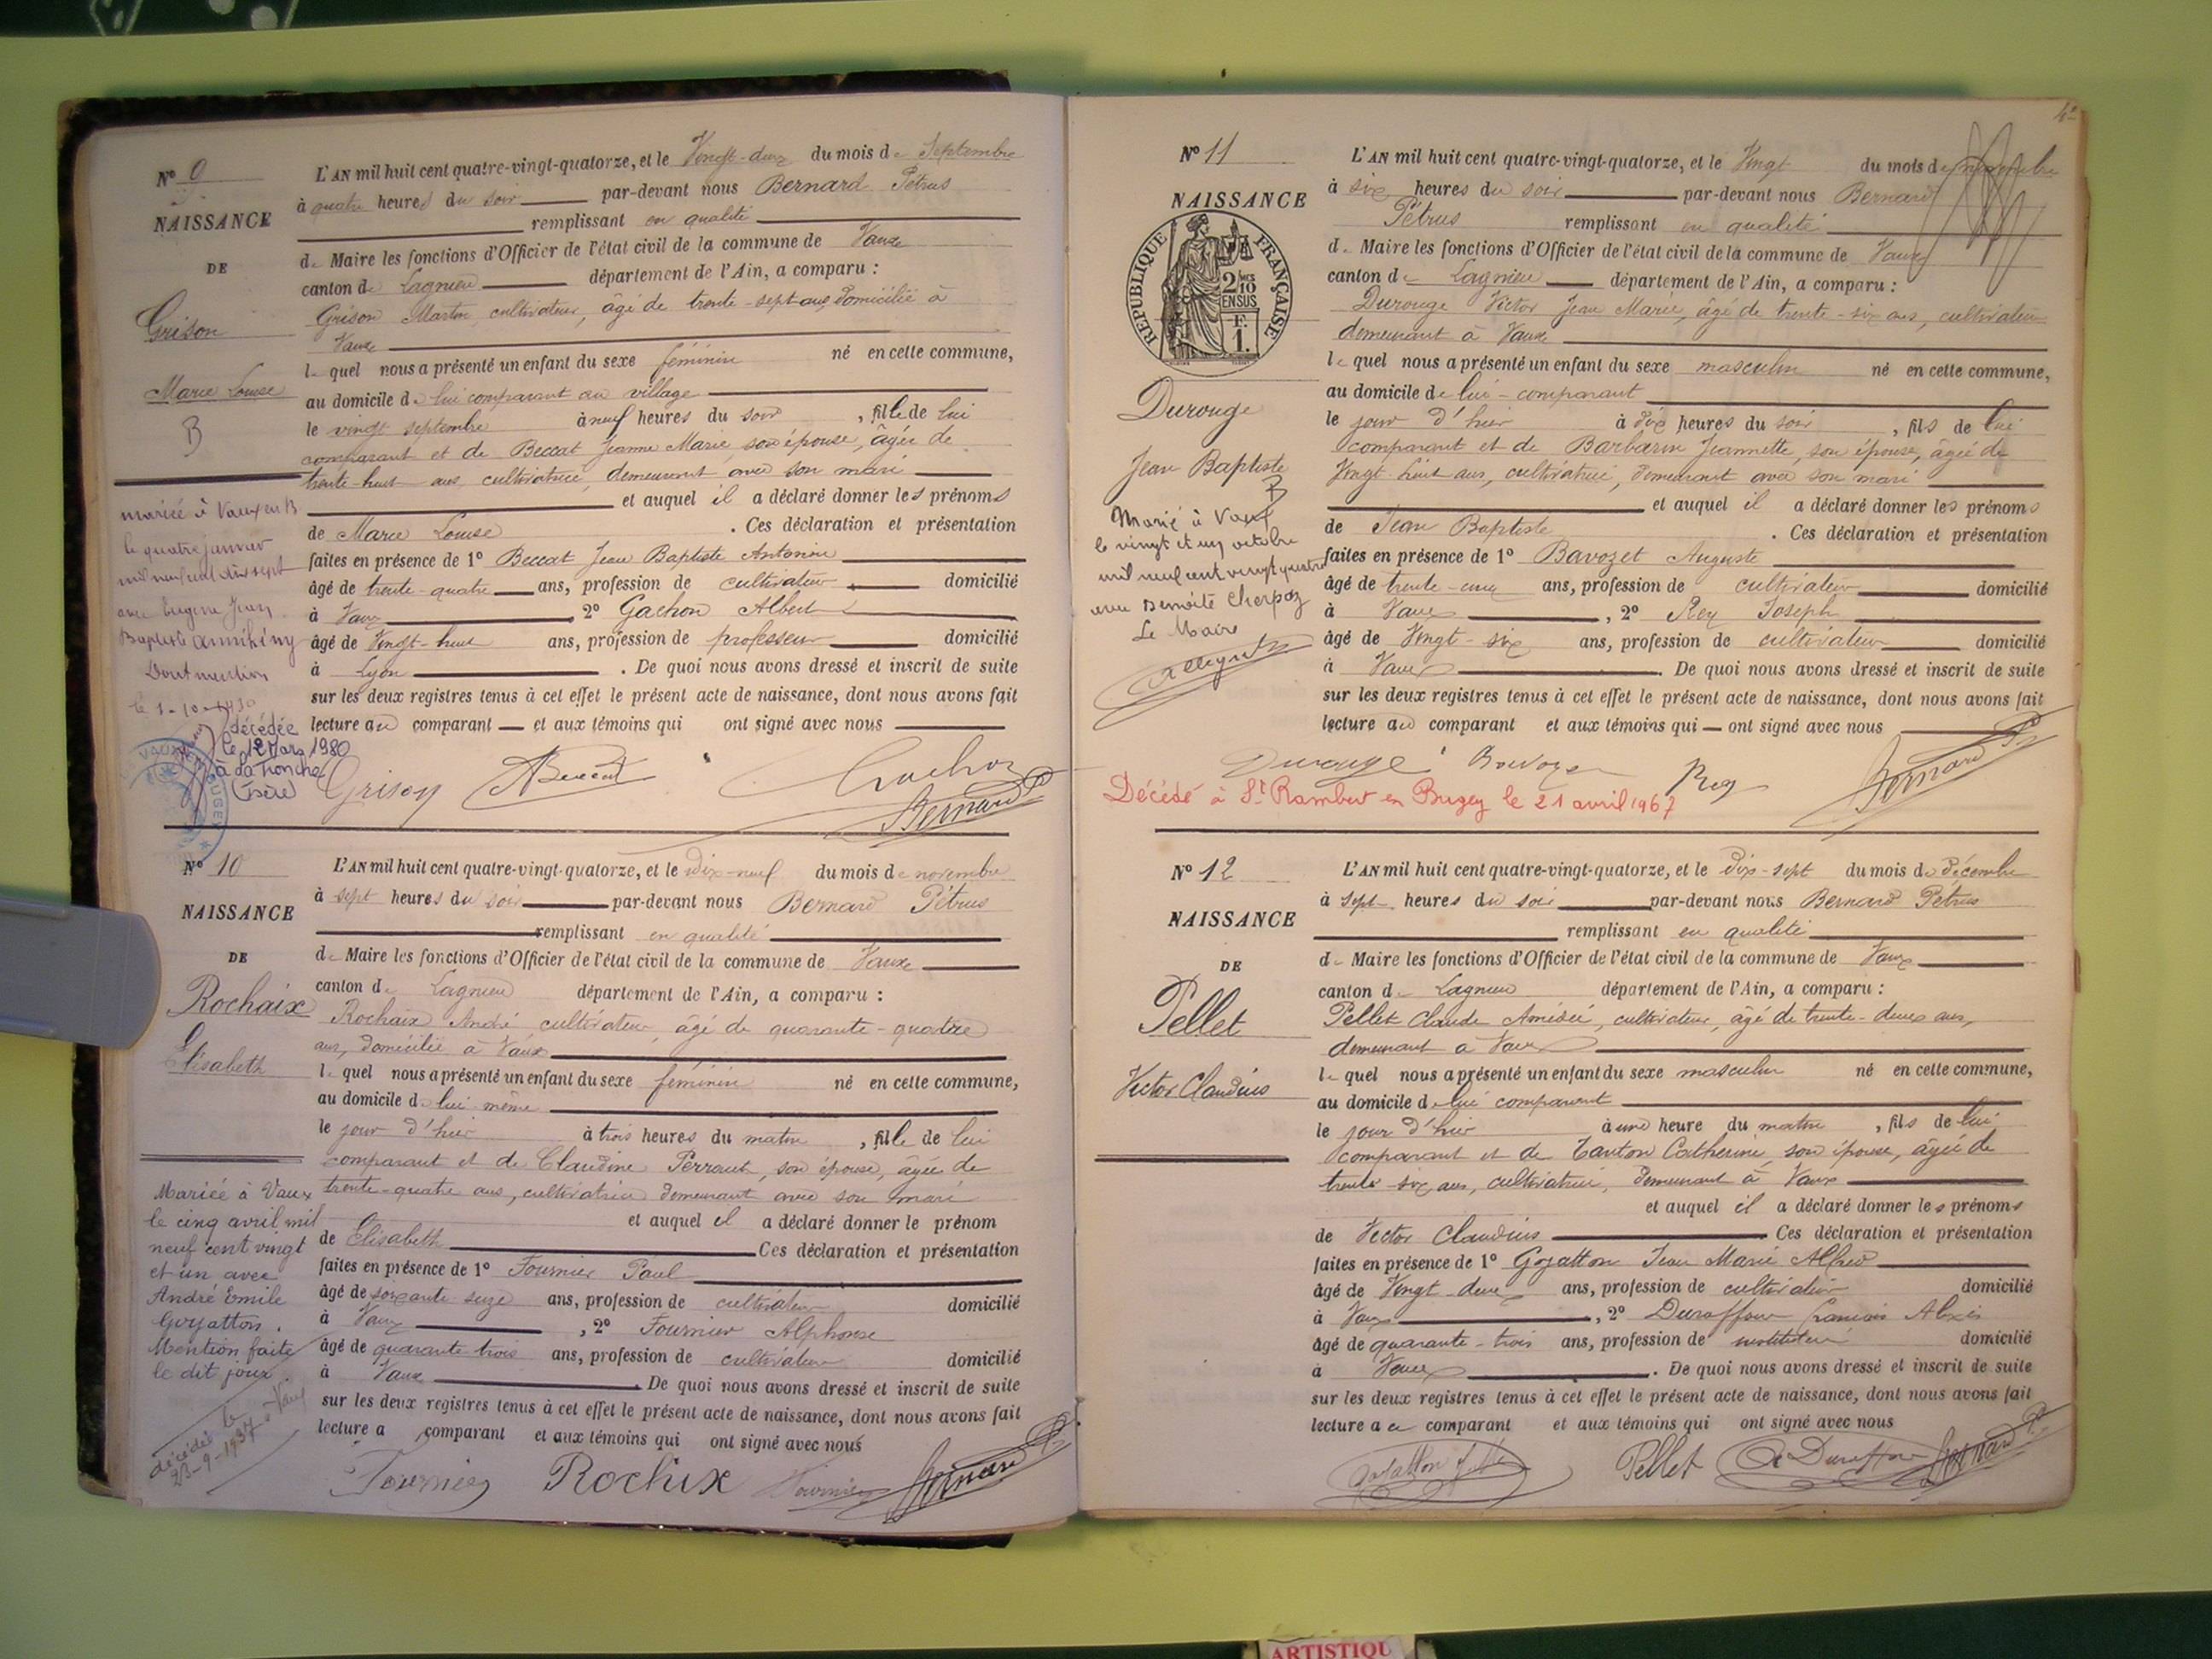 Nº 9
NAISSANCE
DE
Grison
Marie Louise
B
mariée à Vaux en B
le quatre janvier
mil neuf cent dix sept
avec Eugène Jean
Baptiste
Dont mention
le 1-10-1930
décédée
le 12 Mars 1980
à La Tronche
(Isère)
L'AN mil huit cent quatre-vingt-quatorze, et le Vingt-deux du mois de Septembre
à quatre heures du soir par-devant nous Bernard Pétrus
remplissant en qualité
de Maire les fonctions d'Officier de l'état civil de la commune de Vaux
canton de Lagnieu département de l'Ain, a comparu :
Grison Martin, cultivateur, âgé de trente-sept ans, domicilié à
Vaux
lequel nous a présenté un enfant du sexe féminin né en cette commune,
au domicile de lui comparant au village
le vingt septembre à neuf heures du soir, fille de lui
comparant et de Beccat Jeanne Marie, son épouse, âgée de
trente-huit ans, cultivatrice, demeurant avec son mari
et auquel il a déclaré donner les prénoms
de Marie Louise. Ces déclaration et présentation
faites en présence de 1º Beccat Jean Baptiste Antonin
âgé de trente-quatre ans, profession de cultivateur domicilié
à Vaux, 2º Gachon Albert
âgé de Vingt-huit ans, profession de professeur domicilié
à Lyon. De quoi nous avons dressé et inscrit de suite
sur les deux registres tenus à cet effet le présent acte de naissance, dont nous avons fait
lecture au comparant et aux témoins qui ont signé avec nous
Grison ABeccat Gachon
Bernard P
Nº 10
NAISSANCE
DE
Rochaix
Elisabeth
Mariée à Vaux
le cinq avril mil
neuf cent vingt
et un avec
André Emile
Goyatton.
Mention faite
le dit jour.
décédée le
23-9-1937 à Vaux
L'AN mil huit cent quatre-vingt-quatorze, et le dix-neuf du mois de novembre
à sept heures du soir par-devant nous Bernard Pétrus
remplissant en qualité
de Maire les fonctions d'Officier de l'état civil de la commune de Vaux
canton de Lagnieu département de l'Ain, a comparu :
Rochaix André cultivateur, âgé de quarante-quatre
ans, domicilié à Vaux
lequel nous a présenté un enfant du sexe féminin né en cette commune,
au domicile de lui même
le jour d'hier à trois heures du matin, fille de lui
comparant et de Claudine Perraut, son épouse, âgée de
trente-quatre ans, cultivatrice demeurant avec son mari
et auquel il a déclaré donner le prénom
de Elisabeth Ces déclaration et présentation
faites en présence de 1º Fournier Paul
âgé de soixante seize ans, profession de cultivateur domicilié
à Vaux, 2º Fournier Alphonse
âgé de quarante trois ans, profession de cultivateur domicilié
à Vaux. De quoi nous avons dressé et inscrit de suite
sur les deux registres tenus à cet effet le présent acte de naissance, dont nous avons fait
lecture a comparant et aux témoins qui ont signé avec nous
Fournier Rochix Fournier Bernard P
Nº 11
NAISSANCE
REPUBLIQUE FRANÇAISE
2 10
EN SUS
F.
1.
Durouge
Jean Baptiste
B
Marié à Vaux
le vingt et un octobre
mil neuf cent vingt quatre
avec Benoîte Cherpaz
Le Maire
L'AN mil huit cent quatre-vingt-quatorze, et le Vingt du mois de novembre
à six heures du soir par-devant nous Bernard
Pétrus remplissant en qualité
de Maire les fonctions d'Officier de l'état civil de la commune de Vaux
canton de Lagnieu département de l'Ain, a comparu :
Durouge Victor Jean Marie, âgé de trente-six ans, cultivateur
demeurant à Vaux
lequel nous a présenté un enfant du sexe masculin né en cette commune,
au domicile de lui-comparant
le jour d'hier à dix heures du soir, fils de lui
comparant et de Barbarin Jeannette, son épouse, âgée de
Vingt huit ans, cultivatrice, demeurant avec son mari
et auquel il a déclaré donner les prénoms
de Jean Baptiste. Ces déclaration et présentation
faites en présence de 1º Bavozet Auguste
âgé de trente-cinq ans, profession de cultivateur domicilié
à Vaux, 2º Rey Joseph
âgé de Vingt-six ans, profession de cultivateur domicilié
à Vaux. De quoi nous avons dressé et inscrit de suite
sur les deux registres tenus à cet effet le présent acte de naissance, dont nous avons fait
lecture au comparant et aux témoins qui ont signé avec nous
Durouge Bavozet Rey Bernard P
Décédé à St Rambert en Bugey le 21 avril 1967
Nº 12
NAISSANCE
DE
Pellet
Victor Claudius
L'AN mil huit cent quatre-vingt-quatorze, et le dix-sept du mois de décembre
à sept heures du soir par-devant nous Bernard Pétrus
remplissant en qualité
de Maire les fonctions d'Officier de l'état civil de la commune de Vaux
canton de Lagnieu département de l'Ain, a comparu :
Pellet Claude Amédée, cultivateur, âgé de trente-deux ans,
demeurant à Vaux
lequel nous a présenté un enfant du sexe masculin né en cette commune,
au domicile de lui comparant
le jour d'hier à une heure du matin, fils de lui
comparant et de Tanton Catherine, son épouse, âgée de
trente-six ans, cultivatrice, demeurant à Vaux
et auquel il a déclaré donner les prénoms
de Victor Claudius Ces déclaration et présentation
faites en présence de 1º Goyatton Jean Marie Alfred
âgé de Vingt-deux ans, profession de cultivateur domicilié
à Vaux, 2º Duraffour François Alexis
âgé de quarante-trois ans, profession de instituteur domicilié
à Vaux. De quoi nous avons dressé et inscrit de suite
sur les deux registres tenus à cet effet le présent acte de naissance, dont nous avons fait
lecture au comparant et aux témoins qui ont signé avec nous
Goyatton Pellet Duraffour Bernard P
ARTISTIQU